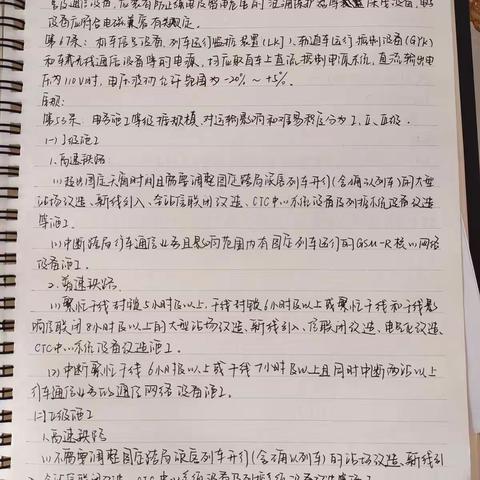 第67条：机车信号设备、列车运行监控装置(LKJ)、轨道车运行控制设备(GYK)
和车载无线通信设备等的电源，均应取自车上直流控制电源系统，直流输出电
压为110V时，电压波动允许范围为-20%～+5%。
第55条 电务施工等级按规模、对运输影响和难易程度分为Ⅰ、Ⅱ、Ⅲ级.
(一)Ⅰ级施工
1.高速铁路.
(1)超出图定天窗时间且需要调整图定跨局旅客列车开行(含确认列车)的大型
站场改造、新线引入、全站信联闭改造、CTC中心系统设备及列控系统设备改造
等施工.
(2)中断跨局行车通信业务且影响范围内有图定列车运行的GSM-R核心网络
设备施工.
2.普速铁路.
(1)繁忙干线封锁5小时及以上、干线封锁6小时及以上或繁忙干线和干线影
响信联闭8小时及以上的大型站场改造、新线引入、信联闭改造、电气化改造、
CTC中心系统设备改造施工.
(2)中断繁忙干线6小时及以上或干线7小时及以上且同时中断两站以上
行车通信业务的通信网络设备施工.
(二)Ⅱ级施工
1.高速铁路
(1)不需要调整图定跨局旅客列车开行(含确认列车)的站场改造、新线引